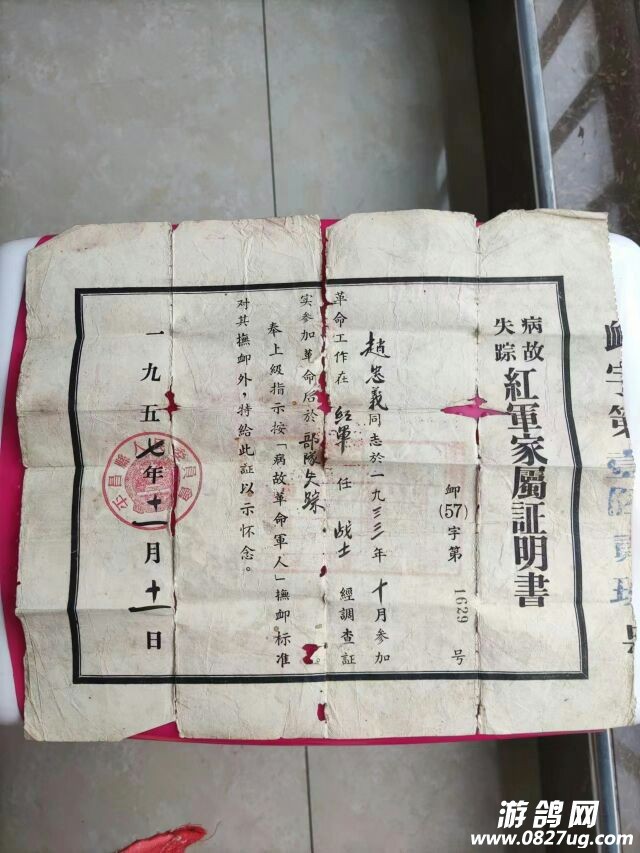 病故
失踪
紅軍家屬証明書
卹(57)字第1629号
趙忠義同志於一九三三年十月参加
革命工作在紅軍任战士經調查証
实参加革命后於部隊失踪
奉上級指示按「病故革命軍人」撫卹标准
对其撫卹外，特給此証以示怀念。
一九五七年十一月十一日
游鸽网
www.0827ug.com